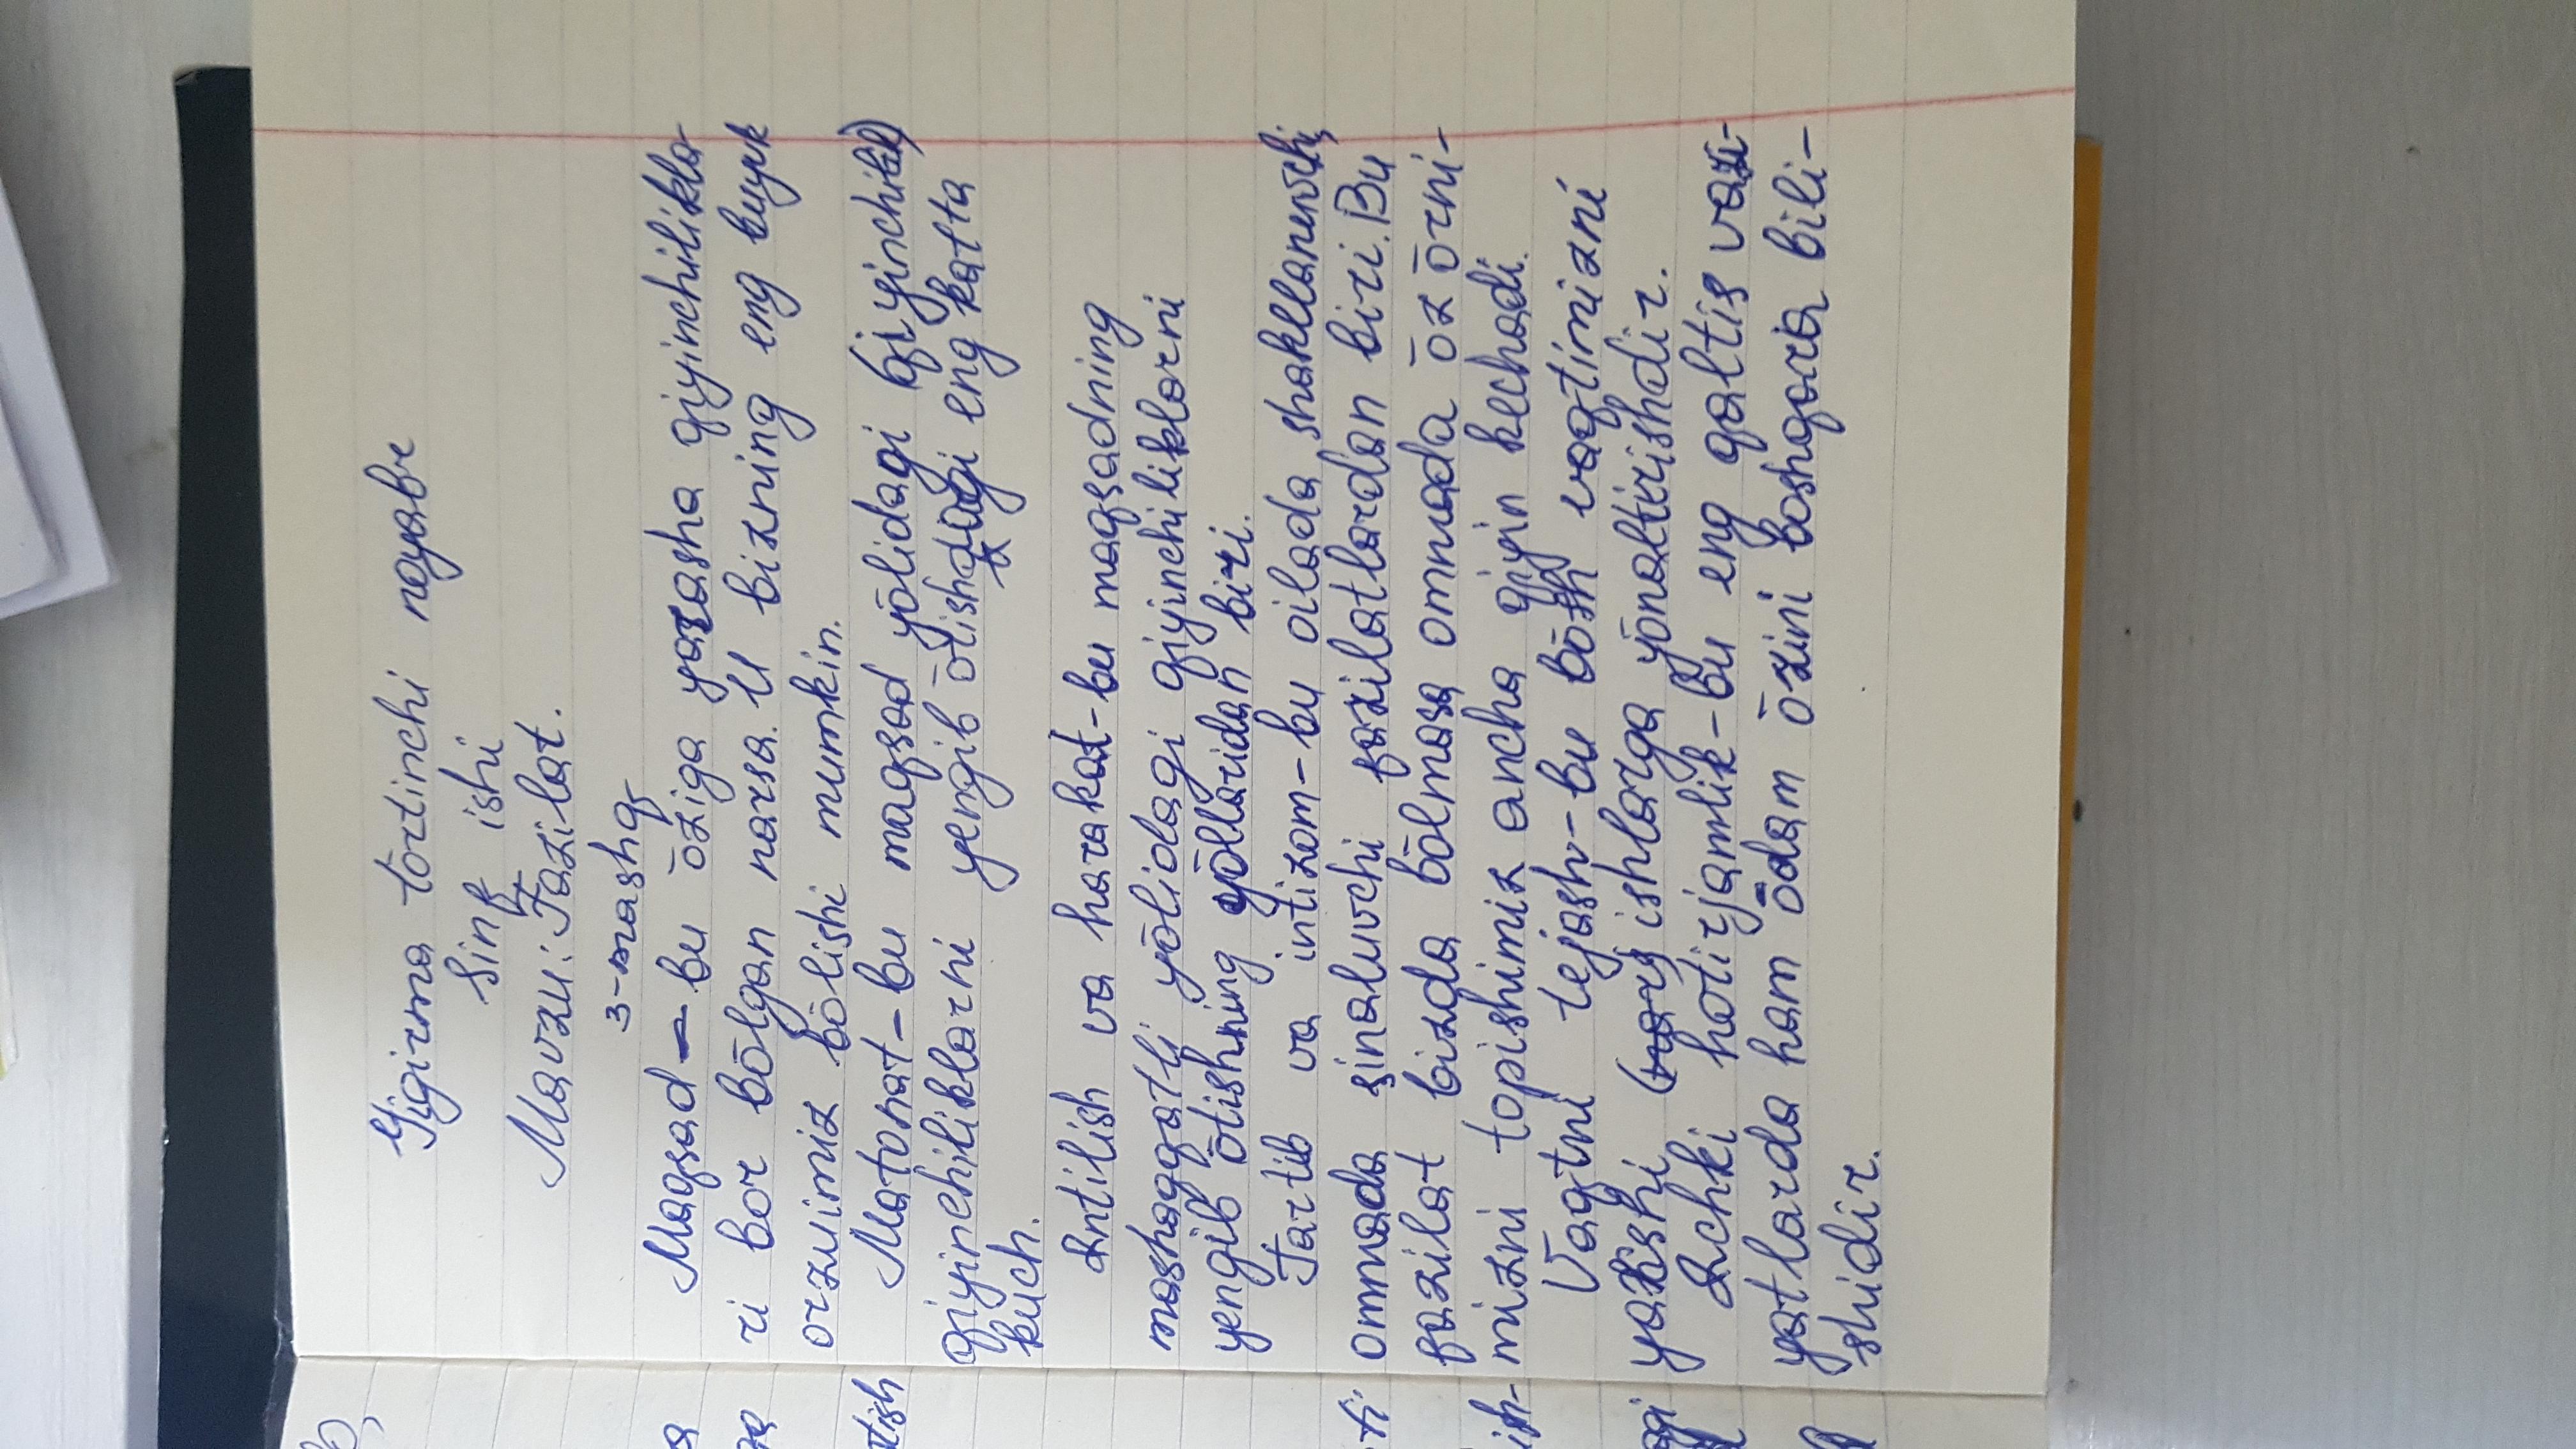 Yigirma tōrtinchi noyabr
Sinf ishi
Mavzu: Fazilat.
3-mashq
Maqsad-bu ōziga yarasha qiyinchilikla-
ri bor bōlgan narsa. U bizning eng buyuk
orzuimiz bōlishi mumkin.
Matonat-bu maqsad yōlidagi qiyinchilik)
qiyinchiliklarni yengib ōtishdagi eng katta
kuch.
Intilish va harakat-bu maqsadning
mashaqqatli yōlidagi qiyinchiliklarni
yengib ōtishning yōllaridan biri.
Tartib va intizom-bu oilada shakllanuvchi,
omnada sinaluvchi fazilatlardan biri. Bu
fazilat bizda bōlmasa omnada ōz ōrni-
mizni topishimiz ancha qiyin kechadi.
Vaqtni tejash-bu bōsh vaqtimizni
yaxshi ishlarga yōnaltirishdir.
Ichki hotirjamlik-bu eng qaltis vazi-
yatlarda ham odam ōzini boshqaria bili-
shidir.